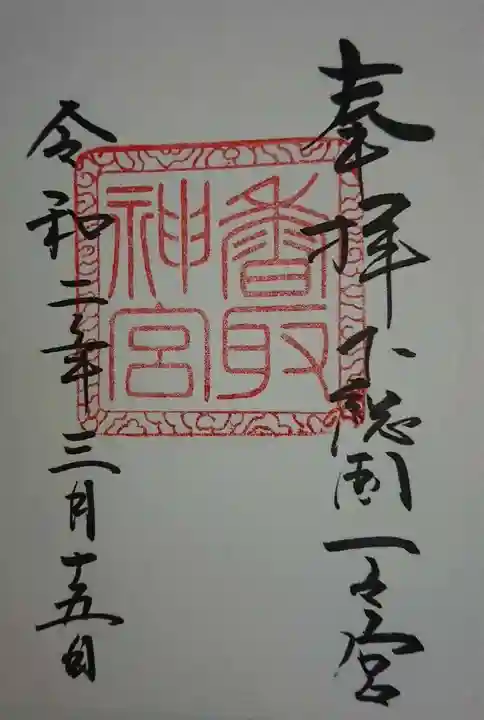 奉拝 下総国一之宮
香取
神宮
令和二年三月十五日